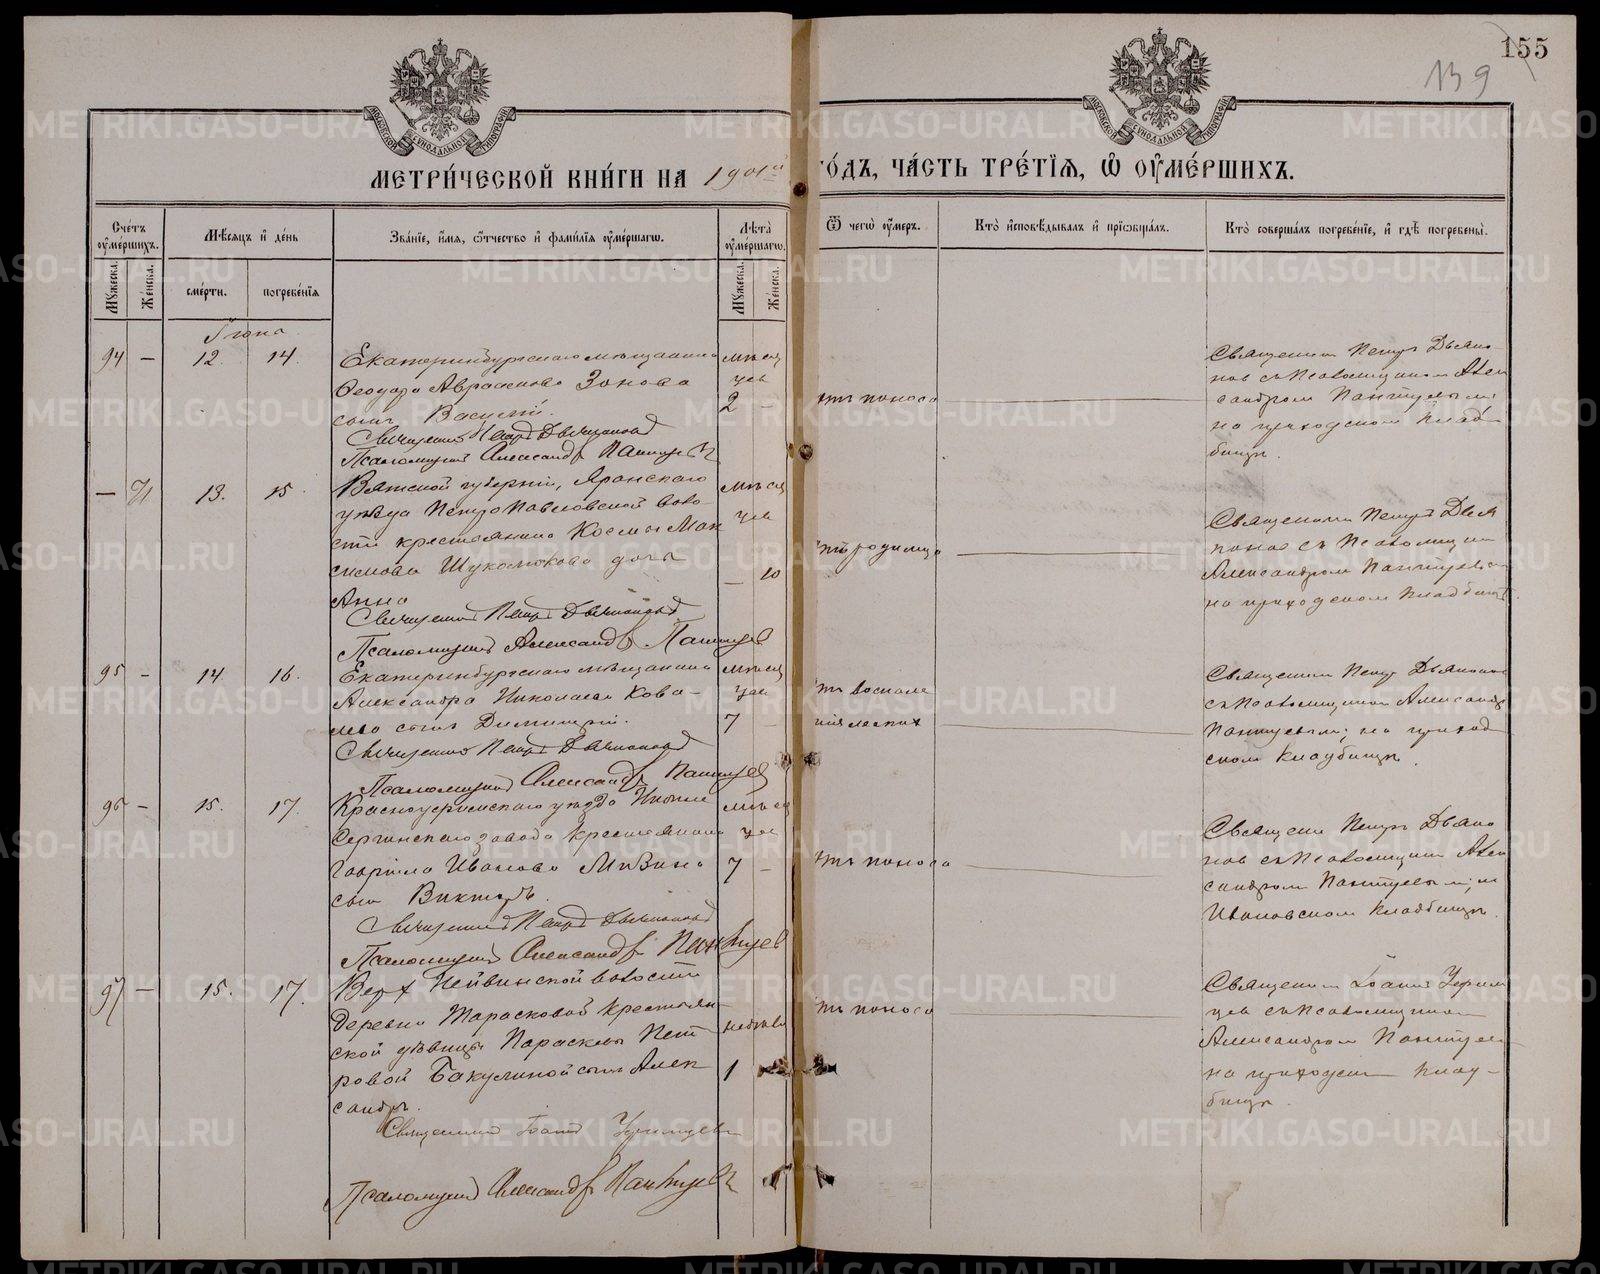 155
139
МЕТРИ́ЧЕСКОЙ КНИ́ГИ НА 1901й
ГО́ДЪ, ЧА́СТЬ ТРЕ́ТІѦ, Ѡ҆ ОУ҆МЕ́РШИХЪ.
Сче́тъ оу҆ме́ршихъ.
Мѣ́сѧцъ и҆ де́нь
Зва́нїе, и҆́мѧ, ѻ҆́тчество и҆ фами́лїѧ оу҆ме́ршагѡ.
Лѣ́та оу҆ме́ршагѡ.
Ѿ чегѡ̀ оу҆́меръ.
Кто̀ и҆сповѣ́дывалъ и҆ прїѡбща́лъ.
Кто̀ соверша́лъ погребе́нїе, и҆ гдѣ̀ погребены̀.
Мꙋ́жеска.
Же́нска.
сме́рти.
погребе́нїѧ
Мꙋ́жеска.
Же́нска.
Іюня
94 — 12. 14.
Екатеринбургскаго мѣщанина
Ѳеодора Авраамова Зонова
сынъ Василій.
Священникъ Петръ Дьяконовъ
Псаломщикъ Александръ Пантуевъ
мѣся
цев
2 —
отъ поноса
Священник Петръ Дьяко
нов съ Псаломщиком Алек
сандром Пантуевым
на приходском клад
бищѣ.
— 71 13. 15.
Вятской губерніи, Яранскаго
уѣзда Петропавловской воло
сти крестьянина Косьмы Мак
симова Шукомокова дочь
Анна
Священникъ Петръ Дьяконовъ
Псаломщикъ Александръ Пантуевъ
мѣся
цев
— 10
отъ родимца
Священник Петръ Дья
конов съ Псаломщиком
Александром Пантуевым
на приходском кладбищѣ.
95 — 14. 16.
Екатеринбургскаго мѣщанина
Александра Николаева Кова-
лева сынъ Димитрій.
Священникъ Петръ Дьяконовъ
Псаломщикъ Александръ Пантуевъ
мѣся
цев
7 —
отъ воспале
нія легких
Священник Петръ Дьяконов
съ Псаломщиком Александр
Пантуевым; на приход
ском кладбищѣ.
96 — 15. 17.
Красноуфимскаго уѣзда Нижне
Сергинскаго завода крестьянина
Гавріила Иванова
сынъ Викторъ.
Священникъ Петръ Дьяконовъ
Псаломщикъ Александръ Пантуевъ
мѣся
цев
7 —
отъ поноса
Священ Петръ Дьяко
нов съ Псаломщиком Алек
сандром Пантуевым, на
Ивановском кладбищѣ.
97 — 15. 17.
Верх Нейвинской волости
деревни Тарасковой крестьян-
ской дѣвицы Параскевы Пет
ровой Бакулиной сынъ Алек
сандръ.
Священникъ Іоаннъ
Псаломщикъ Александръ Пантуевъ
недѣля
1
отъ поноса
Священник Іоанн
цев съ Псаломщиком
Александром Пантуев
на приходском клад-
бищѣ.
METRIKI.GASO-URAL.RU